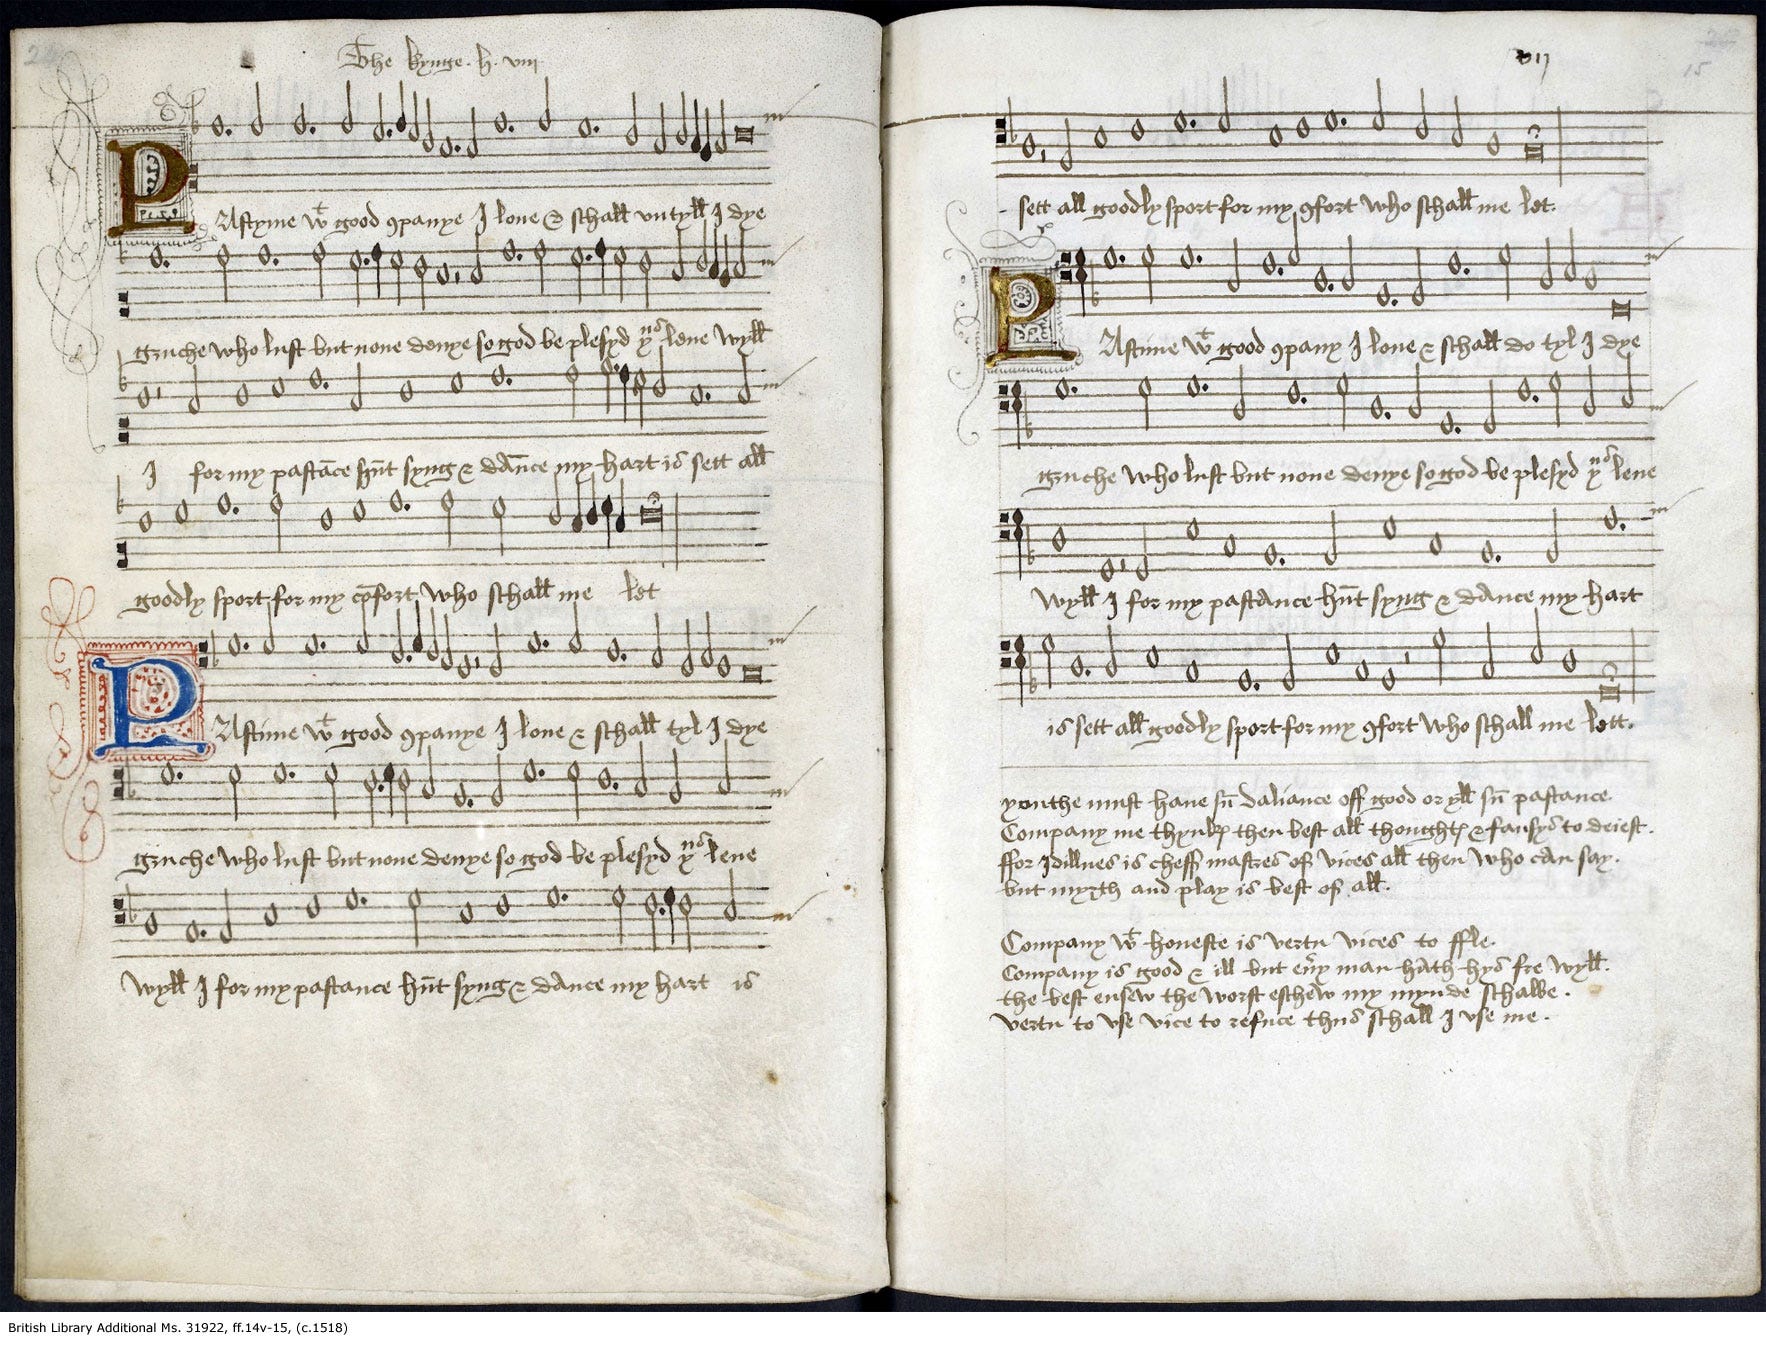 The kynge .h. viii
PAstyme wt good ꝯpanye I loue & schall vntyll I dye
gruche who lust but none denye so god be plesyd þus leue wyll
I for my pastāce hūt syng & dāce my hart is sett all
goodly sport for my cōfort who schall me let
PAstime wt good ꝯpanye I loue & schall tyl I dye
gruche who lust but none denye so god be plesyd þus leue
wyll I for my pastance hūt syng & dance my hart is
vij
15
sett all goodly sport for my ꝯfort who schall me let.
PAstime wt good ꝯpany I loue & schall do tyl I dye
gruche who lust but none denye so god be plesyd þus leue
wyll I for my pastance hūt syng & dance my hart
is sett all goodly sport for my ꝯfort who schall me lett.
youthe must haue sū daliance off good or yll sū pastance.
Company me thynkꝭ then best all thoughtꝭ & fansys to deiest.
ffor Idillnes is cheff mastres of vices all then who can say.
but myrth and play is best of all.
Company wt honeste is vertu vices to ffle.
Company is good & ill but eűy man hath hys fre wyll.
the best ensew the worst eschew my mynde schalbe.
vertu to vse vice to refuce thus schall I vse me.
British Library Additional Ms. 31922, ff.14v-15, (c.1518)